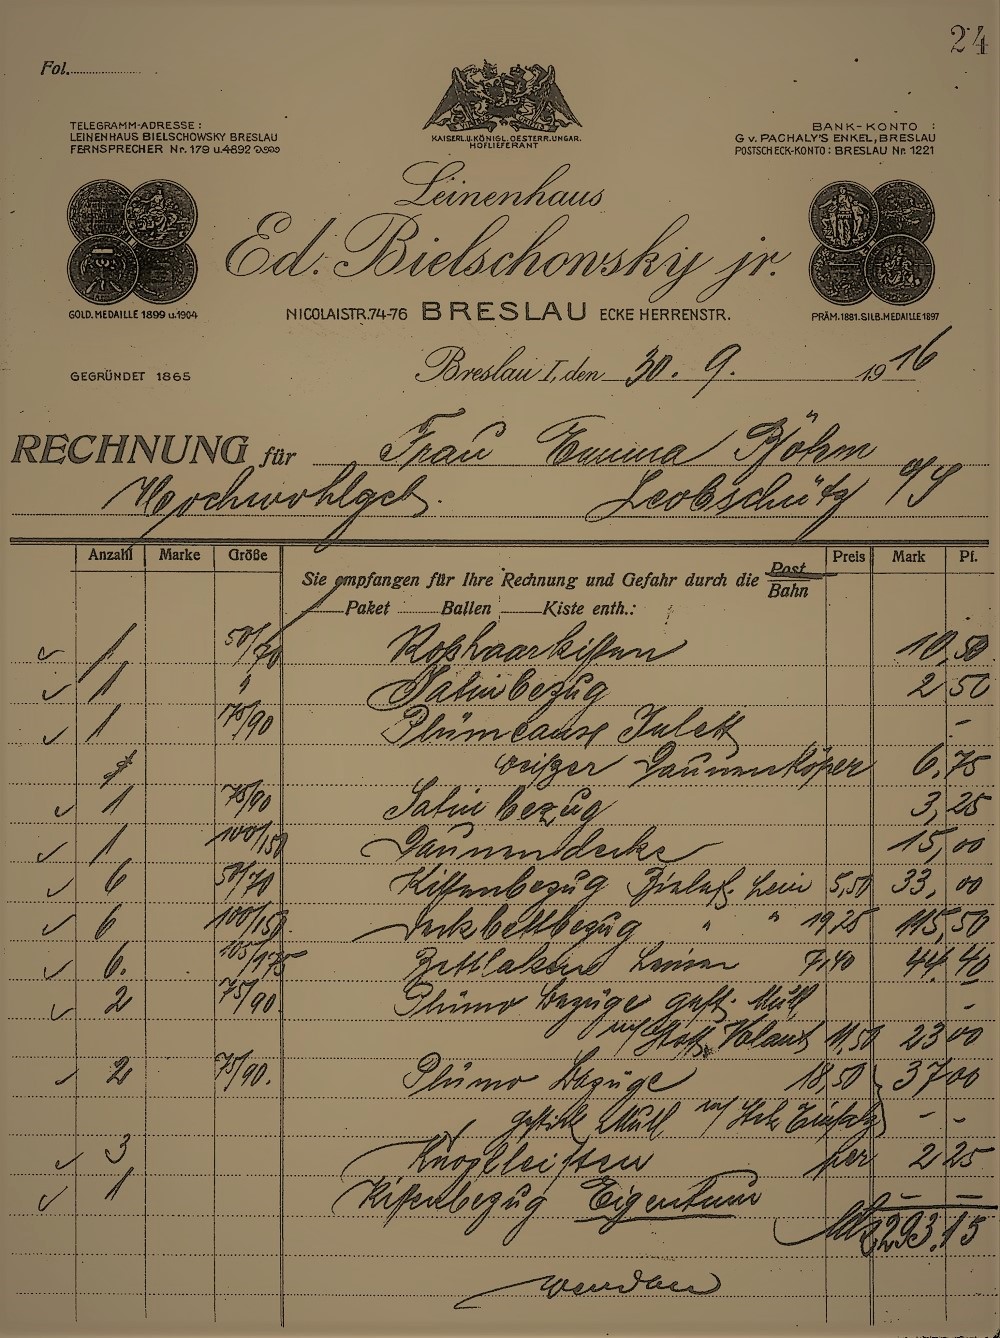 24
Fol.
TELEGRAMM-ADRESSE:
LEINENHAUS BIELSCHOWSKY BRESLAU
FERNSPRECHER Nr. 179 u. 4892
KAISERL. U. KÖNIGL. OESTERR. UNGAR.
HOFLIEFERANT
BANK-KONTO:
G v. PACHALY'S ENKEL, BRESLAU
POSTSCHECK-KONTO: BRESLAU Nr. 1221
Leinenhaus
Ed. Bielschowsky jr.
GOLD. MEDAILLE 1899 u. 1904
NICOLAISTR. 74-76 BRESLAU ECKE HERRENSTR.
PRÄM. 1881. SILB. MEDAILLE 1897
GEGRÜNDET 1865
Breslau I, den 30. 9. 1916
RECHNUNG für Frau Emma Böhm
Hochwohlgeb. Leobschütz O/S
Anzahl Marke Größe Preis Mark Pf.
Sie empfangen für Ihre Rechnung und Gefahr durch die Post
Bahn
Paket Ballen Kiste enth.:
1 50/70 Roßhaarkissen 10,50
1 " Satinbezug 2 50
1 75/90 Plümeaux Inlett -
weißer Daunenköper 6,75
1 75/90 Satin bezug 3,25
1 100/150 Daunendecke 15,00
6 50/70 Kissenbezug Bielef. Lein 5,50 33,00
6 100/150 Deckbettbezug " " 19,25 115,50
6. 105/175 Bettlaken Leinen 7,40 44,40
2 75/90 Plümo bezüge gest. Mull -
m/ Volant 11,50 23 00
2 75/90. Plümo bezüge 18,50 37 00
gestick Mull m/ Stck Einsatz - -
3 Knopfleisten per 2 25
1 Kissenbezug Eigentum - -
293.15
wenden